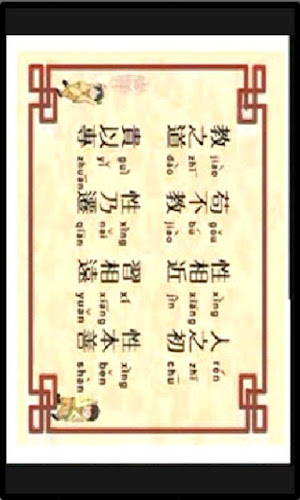 人之初 性本善
rén zhī chū xìng běn shàn
性相近 習相遠
xìng xiāng jìn xí xiāng yuǎn
苟不教 性乃遷
gǒu bú jiào xìng nǎi qiān
教之道 貴以專
jiào zhī dào guì yǐ zhuān